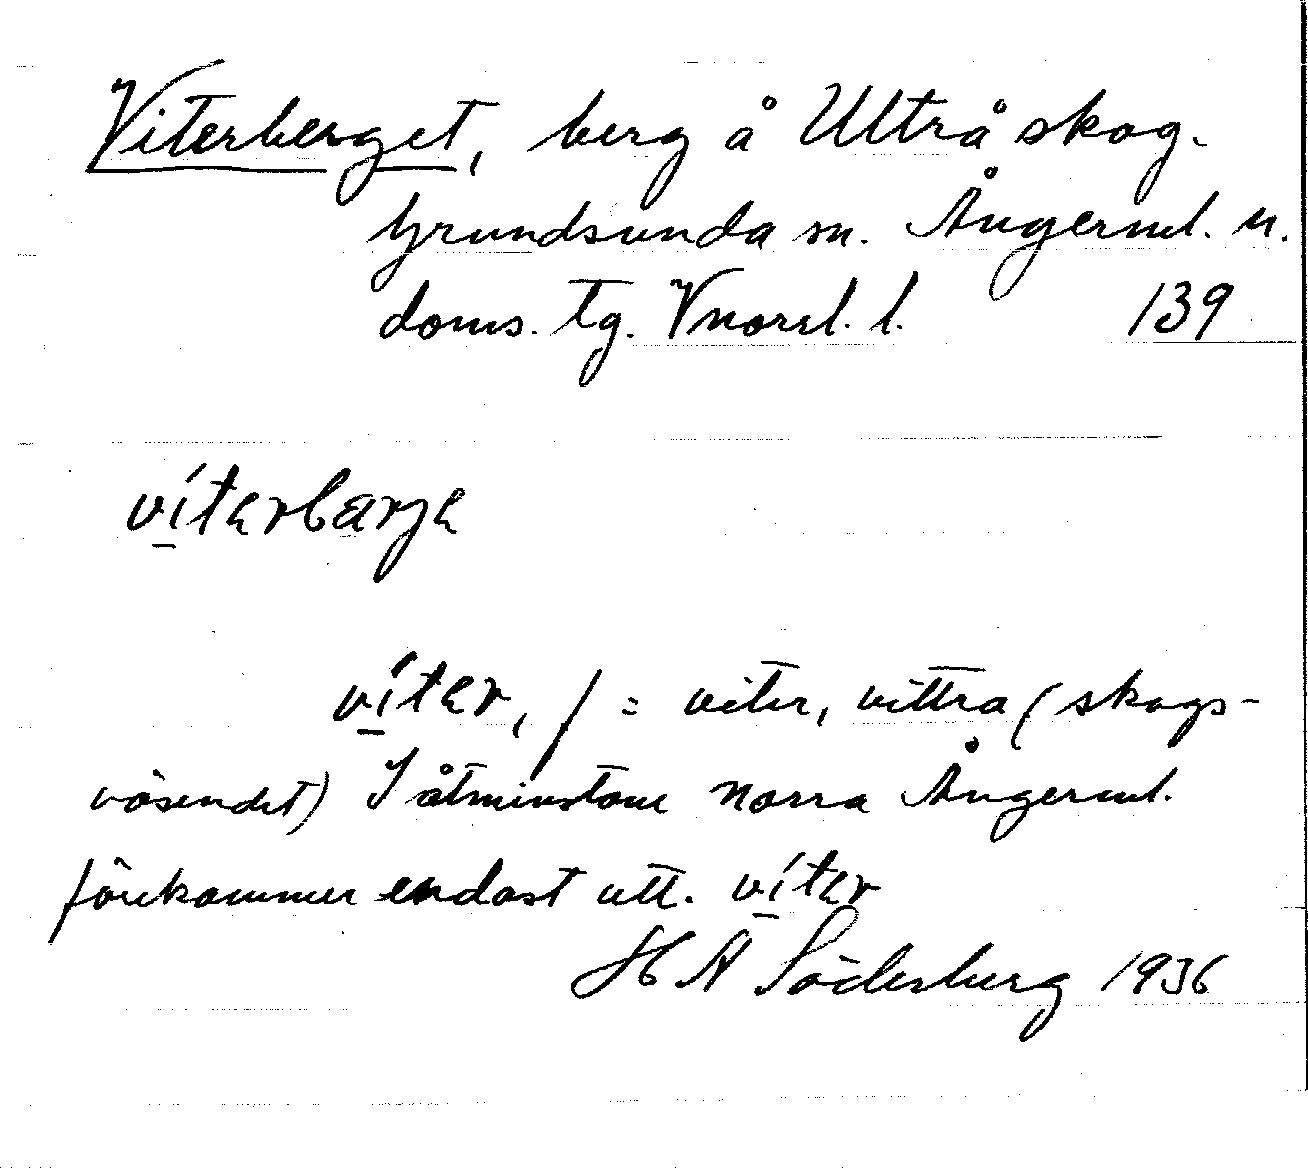 Viterberget, berg å Ultrå skog.
Grundsunda sn. Ångerml. n.
doms. tg. Vnorrl. l. 139
vitərbærjə
vitər, f = viter, vittra (skogs-
väsendet) I åtminstone norra Ångerml.
förekommer endast utt. vitər
H A Söderberg 1936